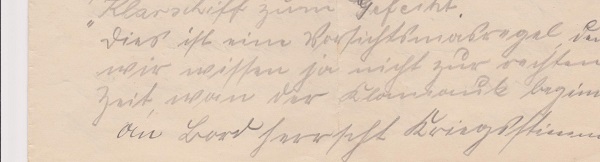 "Klarschiff zum Gefecht.
Dies ist eine Vorsichtsmasregel, den
wir wissen ja nicht zur rechten
Zeit, wan der Klamauk begin
An Bord herrscht Kriegsstimm